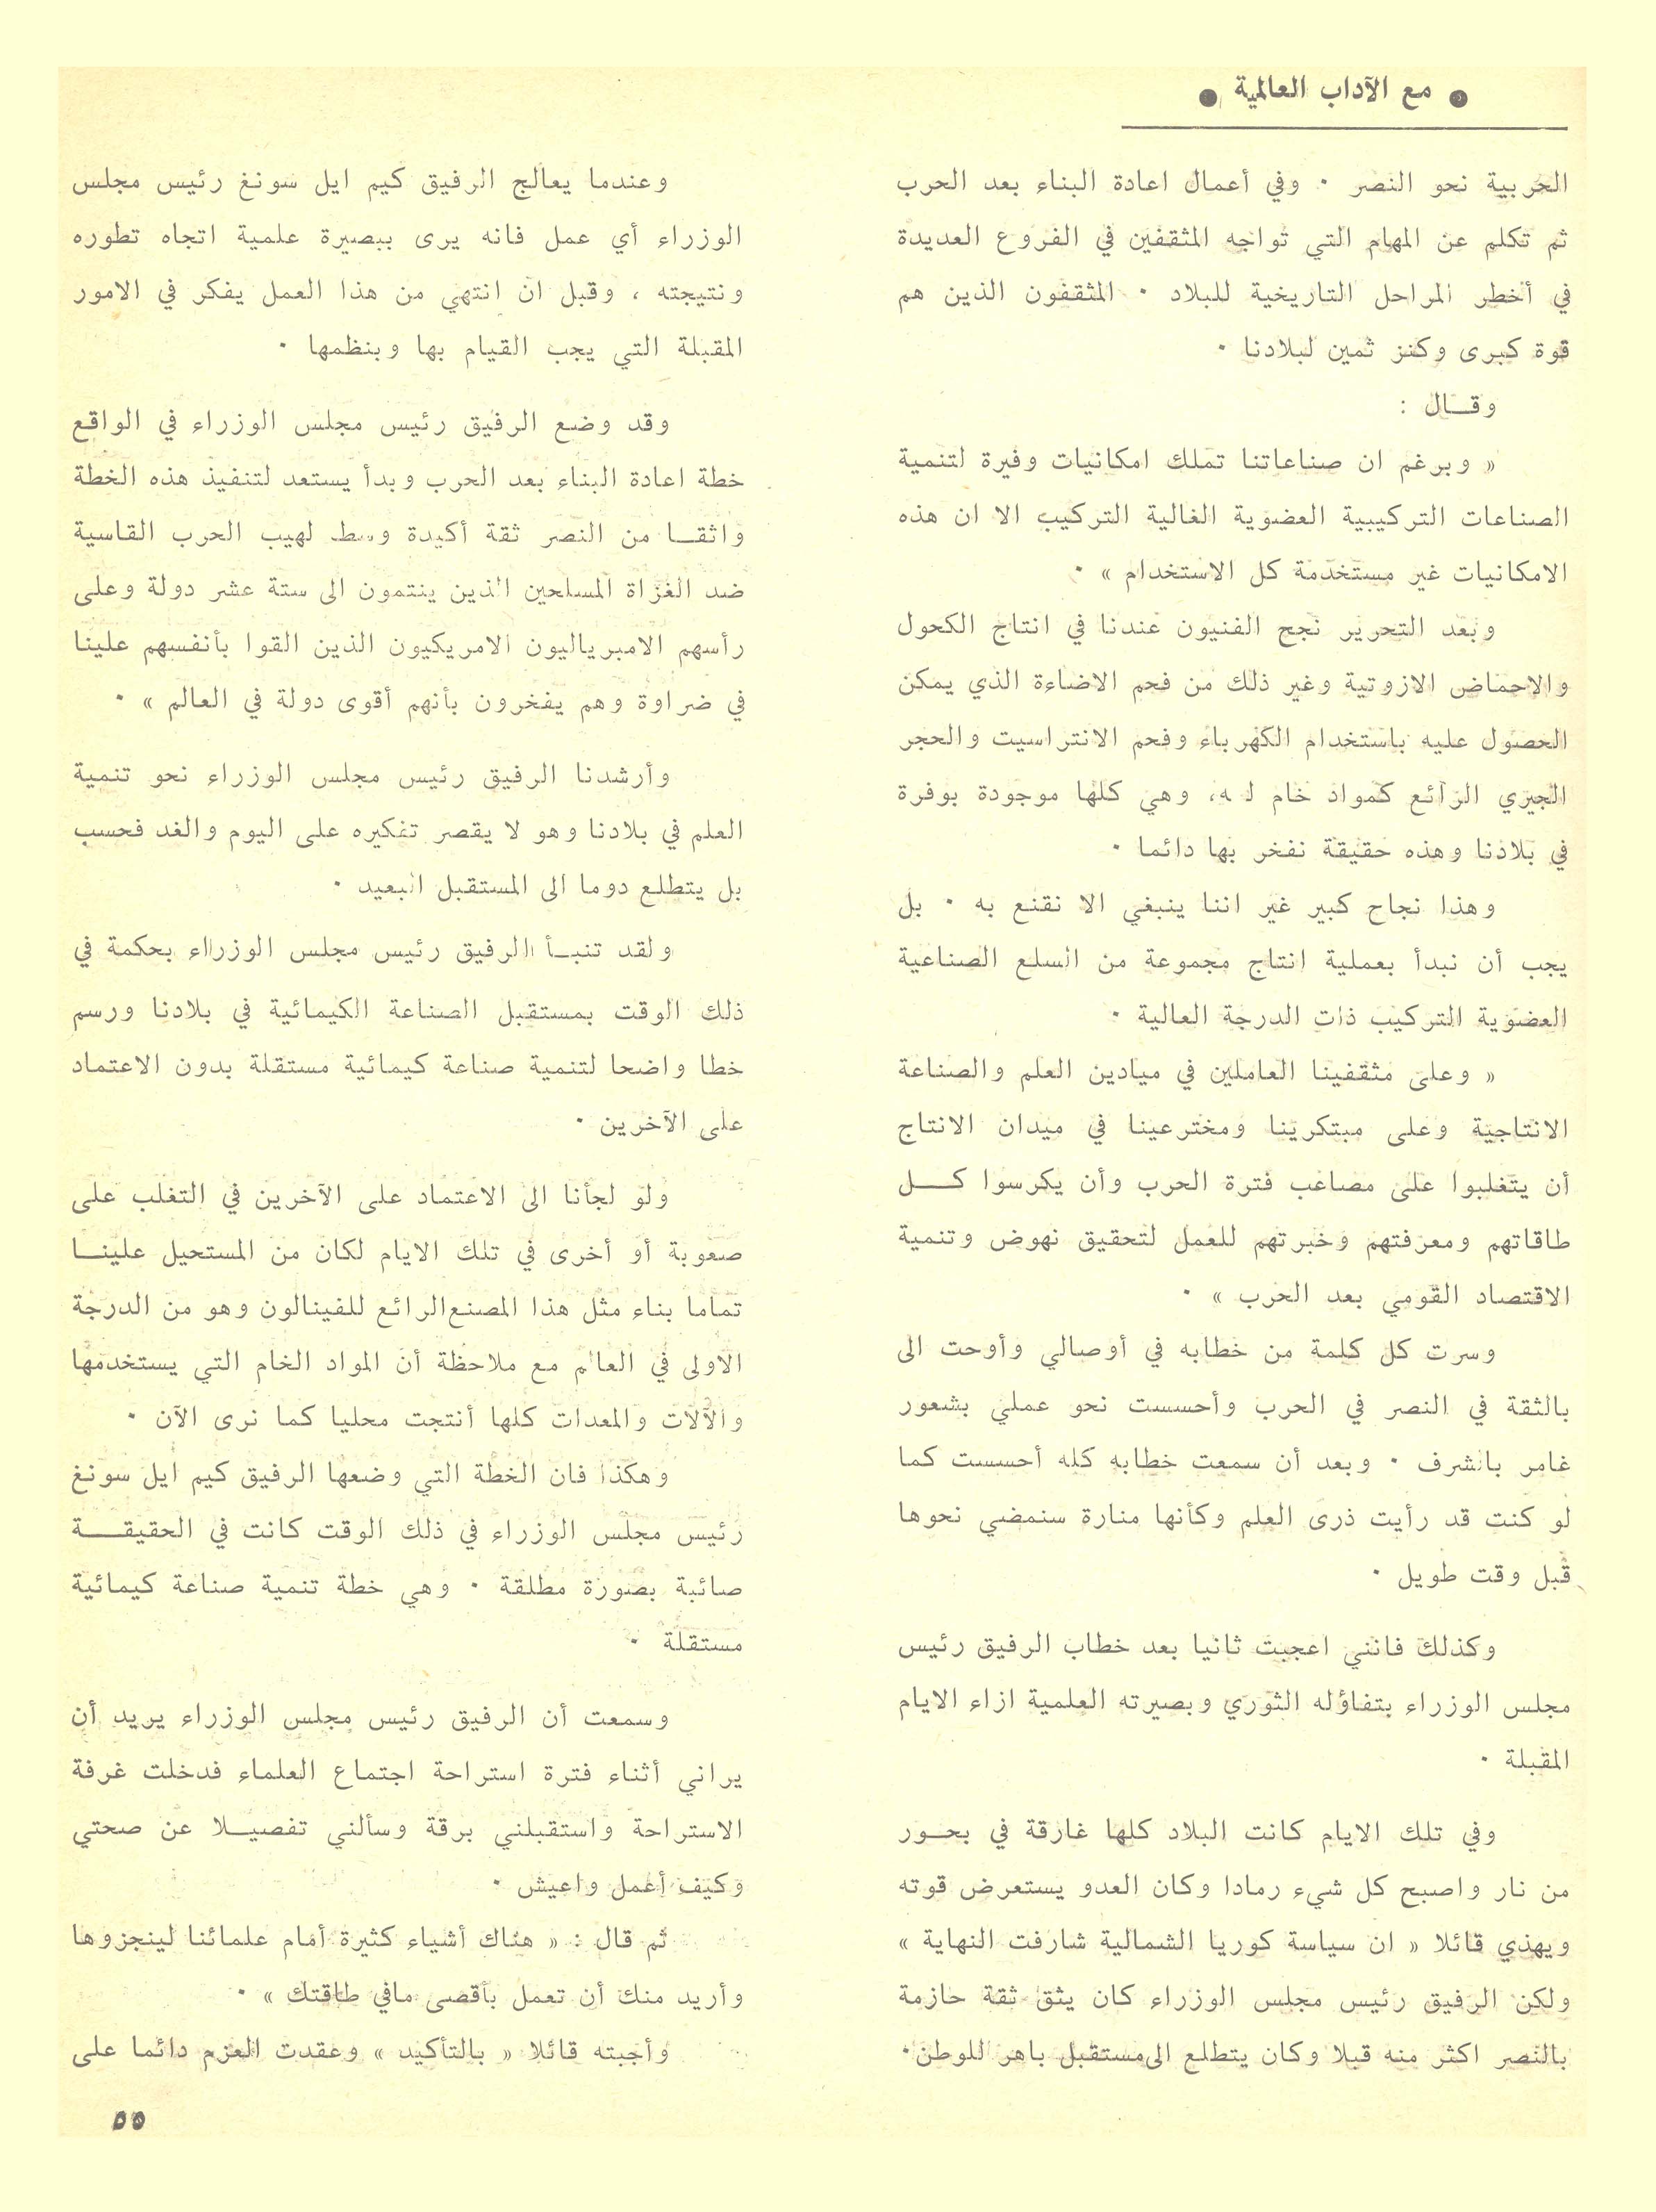 ● مع الآداب العالمية ●
الحربية نحو النصر . وفي أعمال اعادة البناء بعد الحرب
ثم تكلم عن المهام التي تواجه المثقفين في الفروع العديدة
في أخطر المراحل التاريخية للبلاد . المثقفون الذين هم
قوة كبرى وكنز ثمين لبلادنا .
وقـــال :
« وبرغم ان صناعاتنا تملك امكانيات وفيرة لتنمية
الصناعات التركيبية العضوية الغالية التركيب الا ان هذه
الامكانيات غير مستخدمة كل الاستخدام » .
وبعد التحرير نجح الفنيون عندنا في انتاج الكحول
والاحماض الازوتية وغير ذلك من فحم الاضاءة الذي يمكن
الحصول عليه باستخدام الكهرباء وفحم الانتراسيت والحجر
الجيري الرائع كمواد خام له، وهي كلها موجودة بوفرة
في بلادنا وهذه حقيقة نفخر بها دائما .
وهذا نجاح كبير غير اننا ينبغي الا نقنع به . بل
يجب أن نبدأ بعملية انتاج مجموعة من السلع الصناعية
العضوية التركيب ذات الدرجة العالية .
« وعلى مثقفينا العاملين في ميادين العلم والصناعة
الانتاجية وعلى مبتكرينا ومخترعينا في ميدان الانتاج
أن يتغلبوا على مصاعب فترة الحرب وأن يكرسوا كـــل
طاقاتهم ومعرفتهم وخبرتهم للعمل لتحقيق نهوض وتنمية
الاقتصاد القومي بعد الحرب » .
وسرت كل كلمة من خطابه في أوصالي وأوحت الى
بالثقة في النصر في الحرب وأحسست نحو عملي بشعور
غامر بالشرف . وبعد أن سمعت خطابه كله أحسست كما
لو كنت قد رأيت ذرى العلم وكأنها منارة سنمضي نحوها
قبل وقت طويل .
وكذلك فانني اعجبت ثانيا بعد خطاب الرفيق رئيس
مجلس الوزراء بتفاؤله الثوري وبصيرته العلمية ازاء الايام
المقبلة .
وفي تلك الايام كانت البلاد كلها غارقة في بحــور
من نار واصبح كل شيء رمادا وكان العدو يستعرض قوته
ويهذي قائلا « ان سياسة كوريا الشمالية شارفت النهاية »
ولكن الرفيق رئيس مجلس الوزراء كان يثق ثقة حازمة
بالنصر اكثر منه قبلا وكان يتطلع الى مستقبل باهر للوطن.
وعندما يعالج الرفيق كيم ايل سونغ رئيس مجلس
الوزراء أي عمل فانه يرى ببصيرة علمية اتجاه تطوره
ونتيجته ، وقبل ان انتهي من هذا العمل يفكر في الامور
المقبلة التي يجب القيام بها وبنظمها .
وقد وضع الرفيق رئيس مجلس الوزراء في الواقع
خطة اعادة البناء بعد الحرب وبدأ يستعد لتنفيذ هذه الخطة
واثقــا من النصر ثقة أكيدة وسط لهيب الحرب القاسية
ضد الغزاة المسلحين الذين ينتمون الى ستة عشر دولة وعلى
رأسهم الامبرياليون الامريكيون الذين القوا بأنفسهم علينا
في ضراوة وهم يفخرون بأنهم أقوى دولة في العالم » .
وأرشدنا الرفيق رئيس مجلس الوزراء نحو تنمية
العلم في بلادنا وهو لا يقصر تفكيره على اليوم والغد فحسب
بل يتطلع دوما الى المستقبل البعيد .
ولقد تنبــأ الرفيق رئيس مجلس الوزراء بحكمة في
ذلك الوقت بمستقبل الصناعة الكيمائية في بلادنا ورسم
خطا واضحا لتنمية صناعة كيمائية مستقلة بدون الاعتماد
على الآخرين .
ولو لجأنا الى الاعتماد على الآخرين في التغلب على
صعوبة أو أخرى في تلك الايام لكان من المستحيل علينــا
تماما بناء مثل هذا المصنع الرائع للفينالون وهو من الدرجة
الاولى في العالم مع ملاحظة أن المواد الخام التي يستخدمها
والآلات والمعدات كلها أنتجت محليا كما نرى الآن .
وهكذا فان الخطة التي وضعها الرفيق كيم ايل سونغ
رئيس مجلس الوزراء في ذلك الوقت كانت في الحقيقـــة
صائبة بصورة مطلقة . وهي خطة تنمية صناعة كيمائية
مستقلة .
وسمعت أن الرفيق رئيس مجلس الوزراء يريد أن
يراني أثناء فترة استراحة اجتماع العلماء فدخلت غرفة
الاستراحة واستقبلني برقة وسألني تفصيــلا عن صحتي
وكيف أعمل واعيش .
ثم قال : « هناك أشياء كثيرة أمام علمائنا لينجزوها
وأريد منك أن تعمل بأقصى مافي طاقتك » .
وأجبته قائلا « بالتأكيد » وعقدت العزم دائما على
٥٥